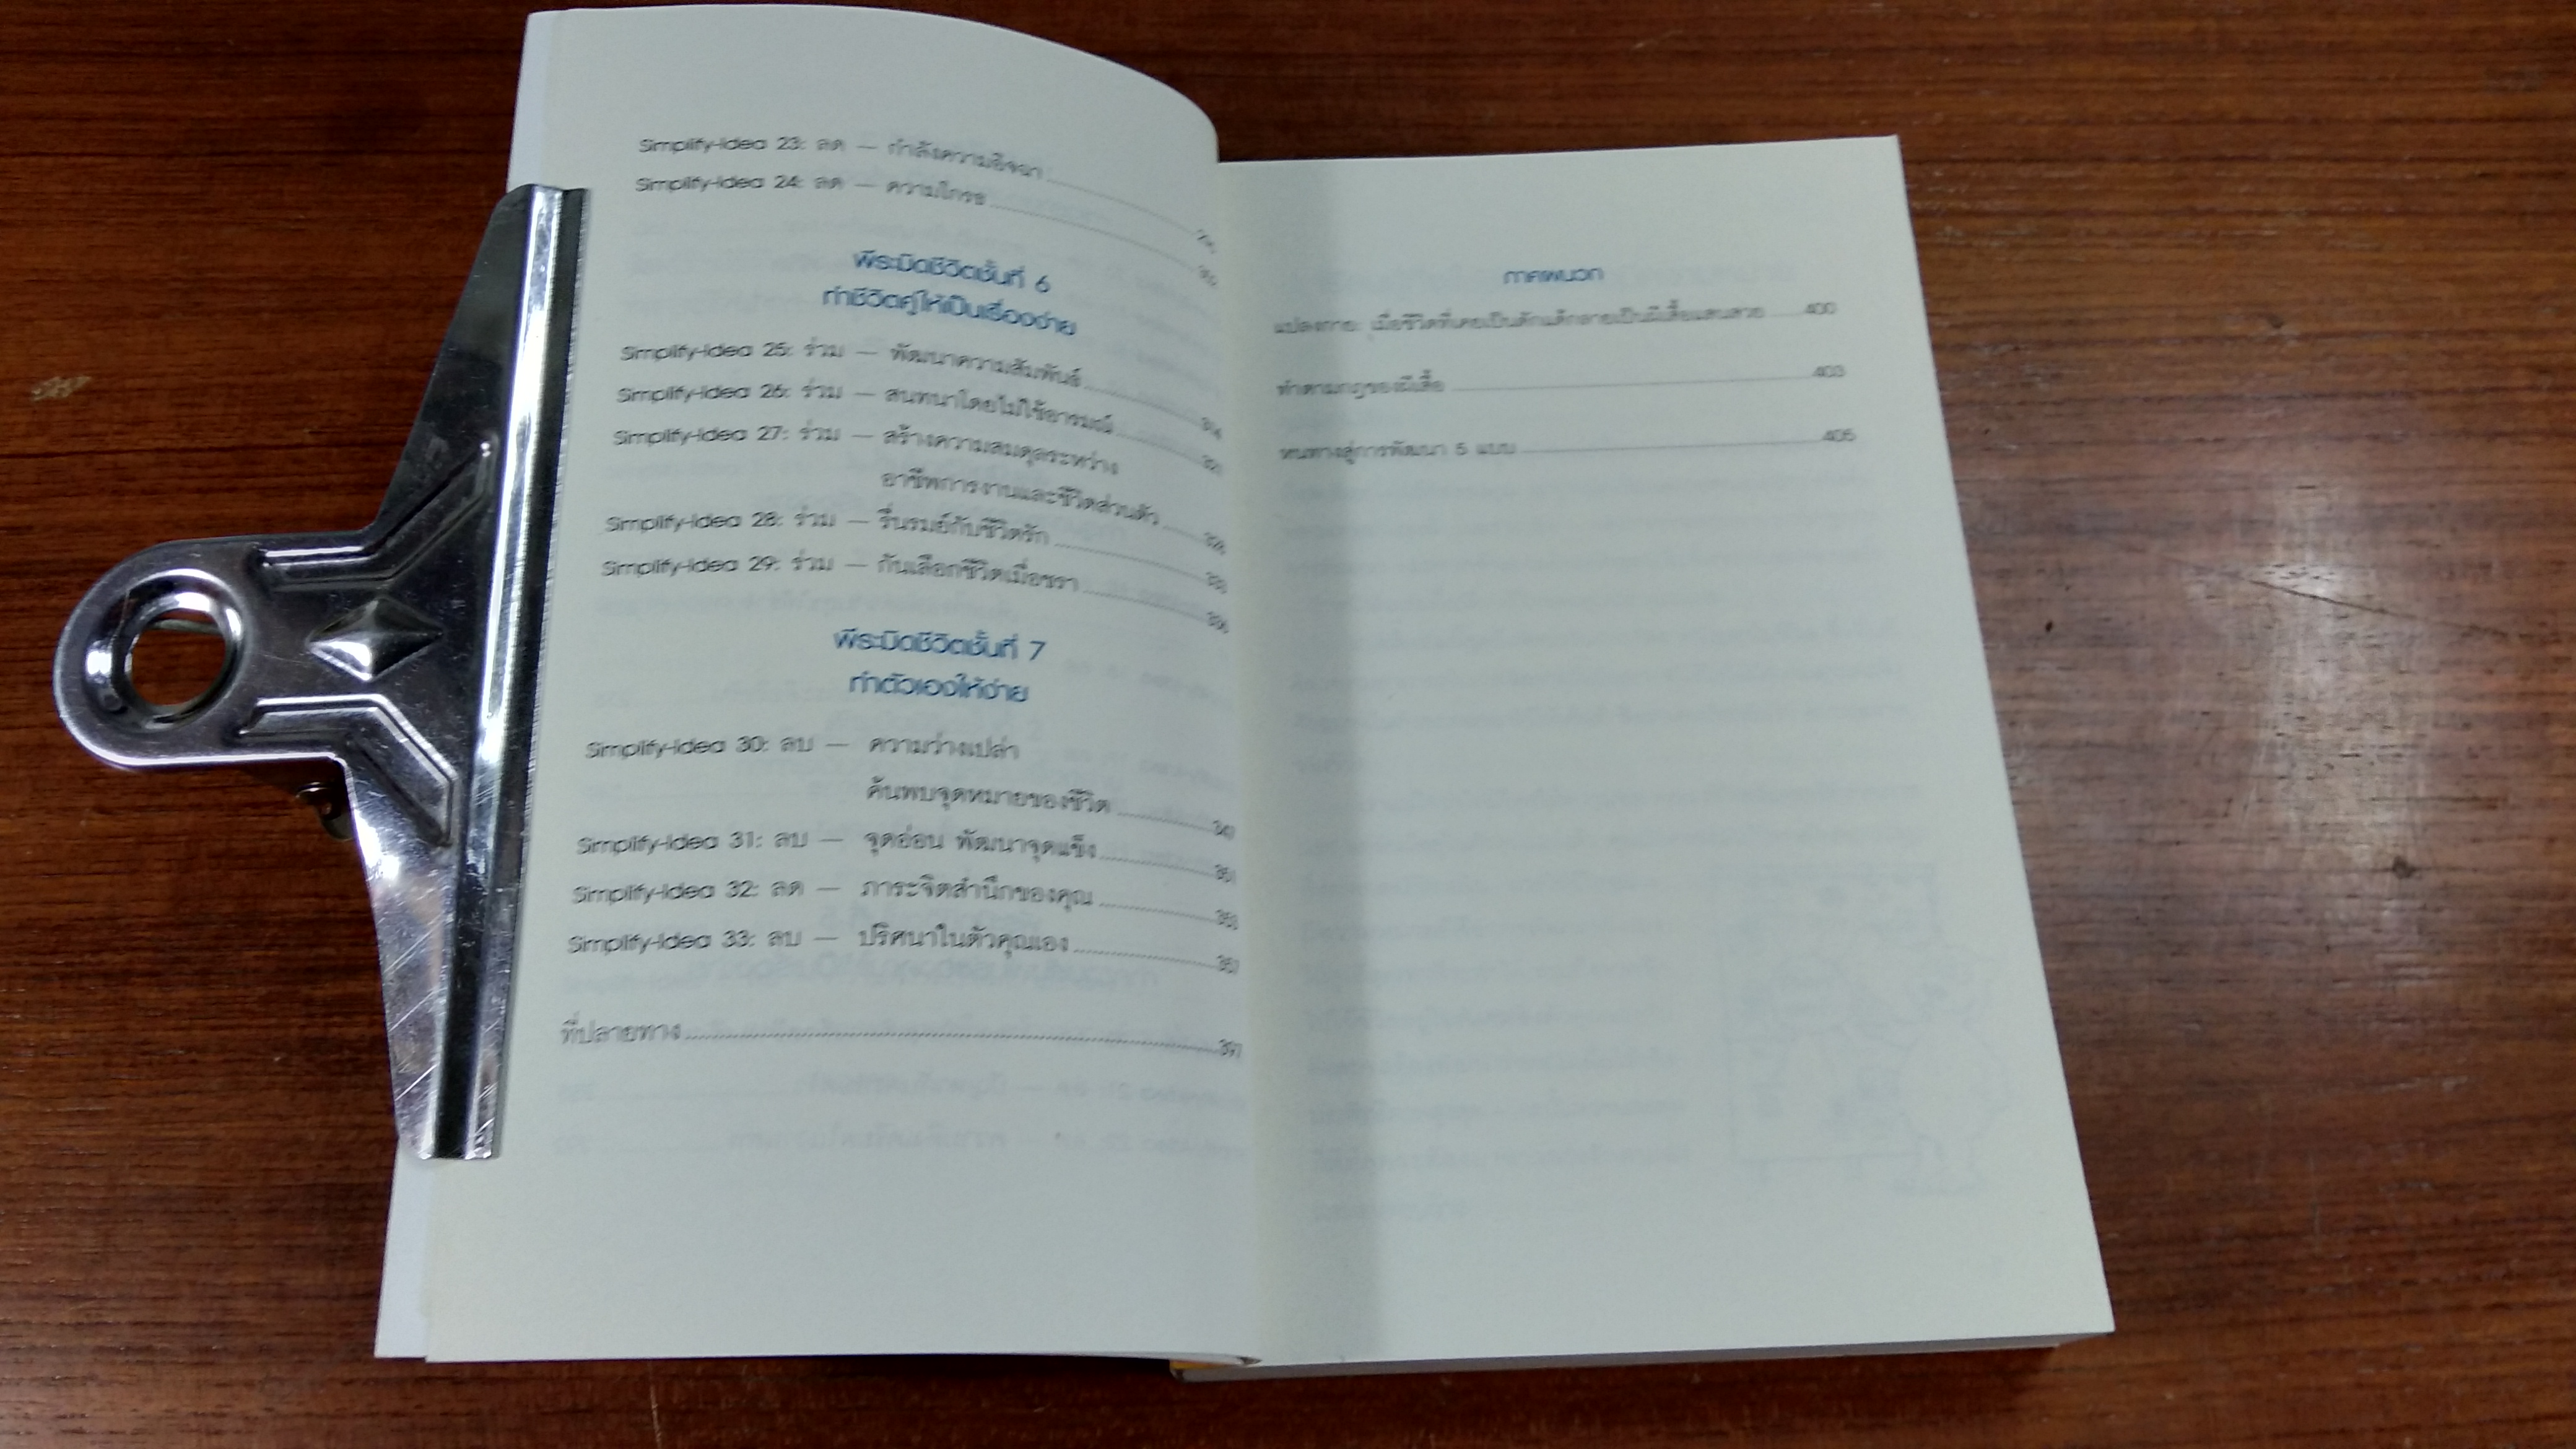 Simplify-Idea 23: ลด — กำลังความอิจฉา
Simplify-Idea 24: ลด — ความโกรธ
พีระมิดชีวิตชั้นที่ 6
ทำชีวิตคู่ให้เป็นเรื่องง่าย
Simplify-Idea 25: ร่วม — พัฒนาความสัมพันธ์ 314
Simplify-Idea 26: ร่วม — สนทนาโดยไม่ใช้อารมณ์ 321
Simplify-Idea 27: ร่วม — สร้างความสมดุลระหว่าง
อาชีพการงานและชีวิตส่วนตัว
Simplify-Idea 28: ร่วม — รื่นรมย์กับชีวิตรัก
Simplify-Idea 29: ร่วม — กันเลือกชีวิตเมื่อชรา
พีระมิดชีวิตชั้นที่ 7
ทำตัวเองให้ง่าย
Simplify-Idea 30: ลบ — ความว่างเปล่า
ค้นพบจุดหมายของชีวิต
Simplify-Idea 31: ลบ — จุดอ่อน พัฒนาจุดแข็ง 351
Simplify-Idea 32: ลด — ภาระจิตสำนึกของคุณ
Simplify-Idea 33: ลบ — ปริศนาในตัวคุณเอง
ที่ปลายทาง 397
ภาคผนวก
แปลงกาย: เมื่อชีวิตที่เคยเป็นดักแด้กลายเป็นผีเสื้อแสนสวย 400
ทำตามกฎของผีเสื้อ 403
หนทางสู่การพัฒนา 5 แบบ 405